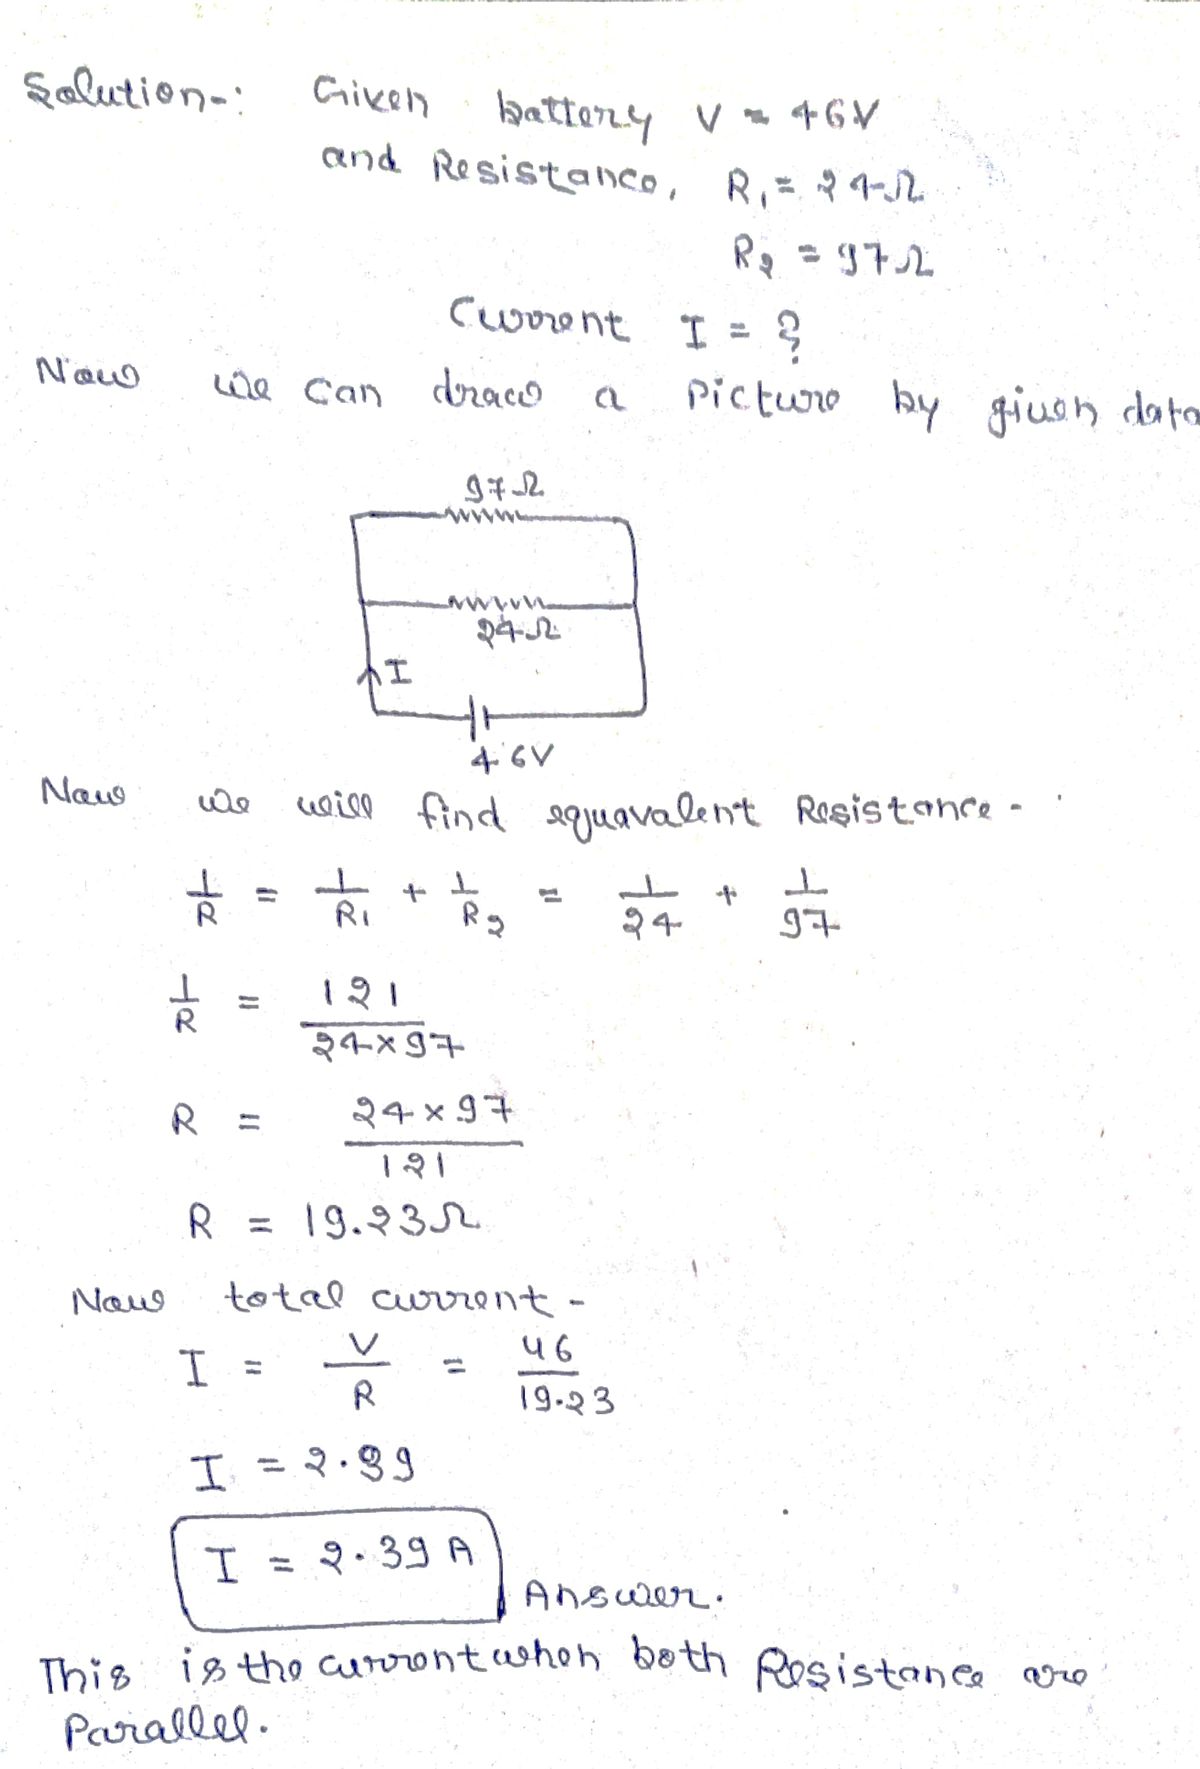 Solution-: Given battery V = 46V
and Resistance, R₁ = 24Ω
R₂ = 97Ω
Current I = ?
Now we can draw a Picture by given data
97Ω
24Ω
I
46V
Now we will find equavalent Resistance -
1/R = 1/R₁ + 1/R₂ = 1/24 + 1/97
1/R = 121/24×97
R = 24×97/121
R = 19.23Ω
Now total current -
I = V/R = 46/19.23
I = 2.39
I = 2.39 A
Answer.
This is the current when both Resistance are
Parallel.